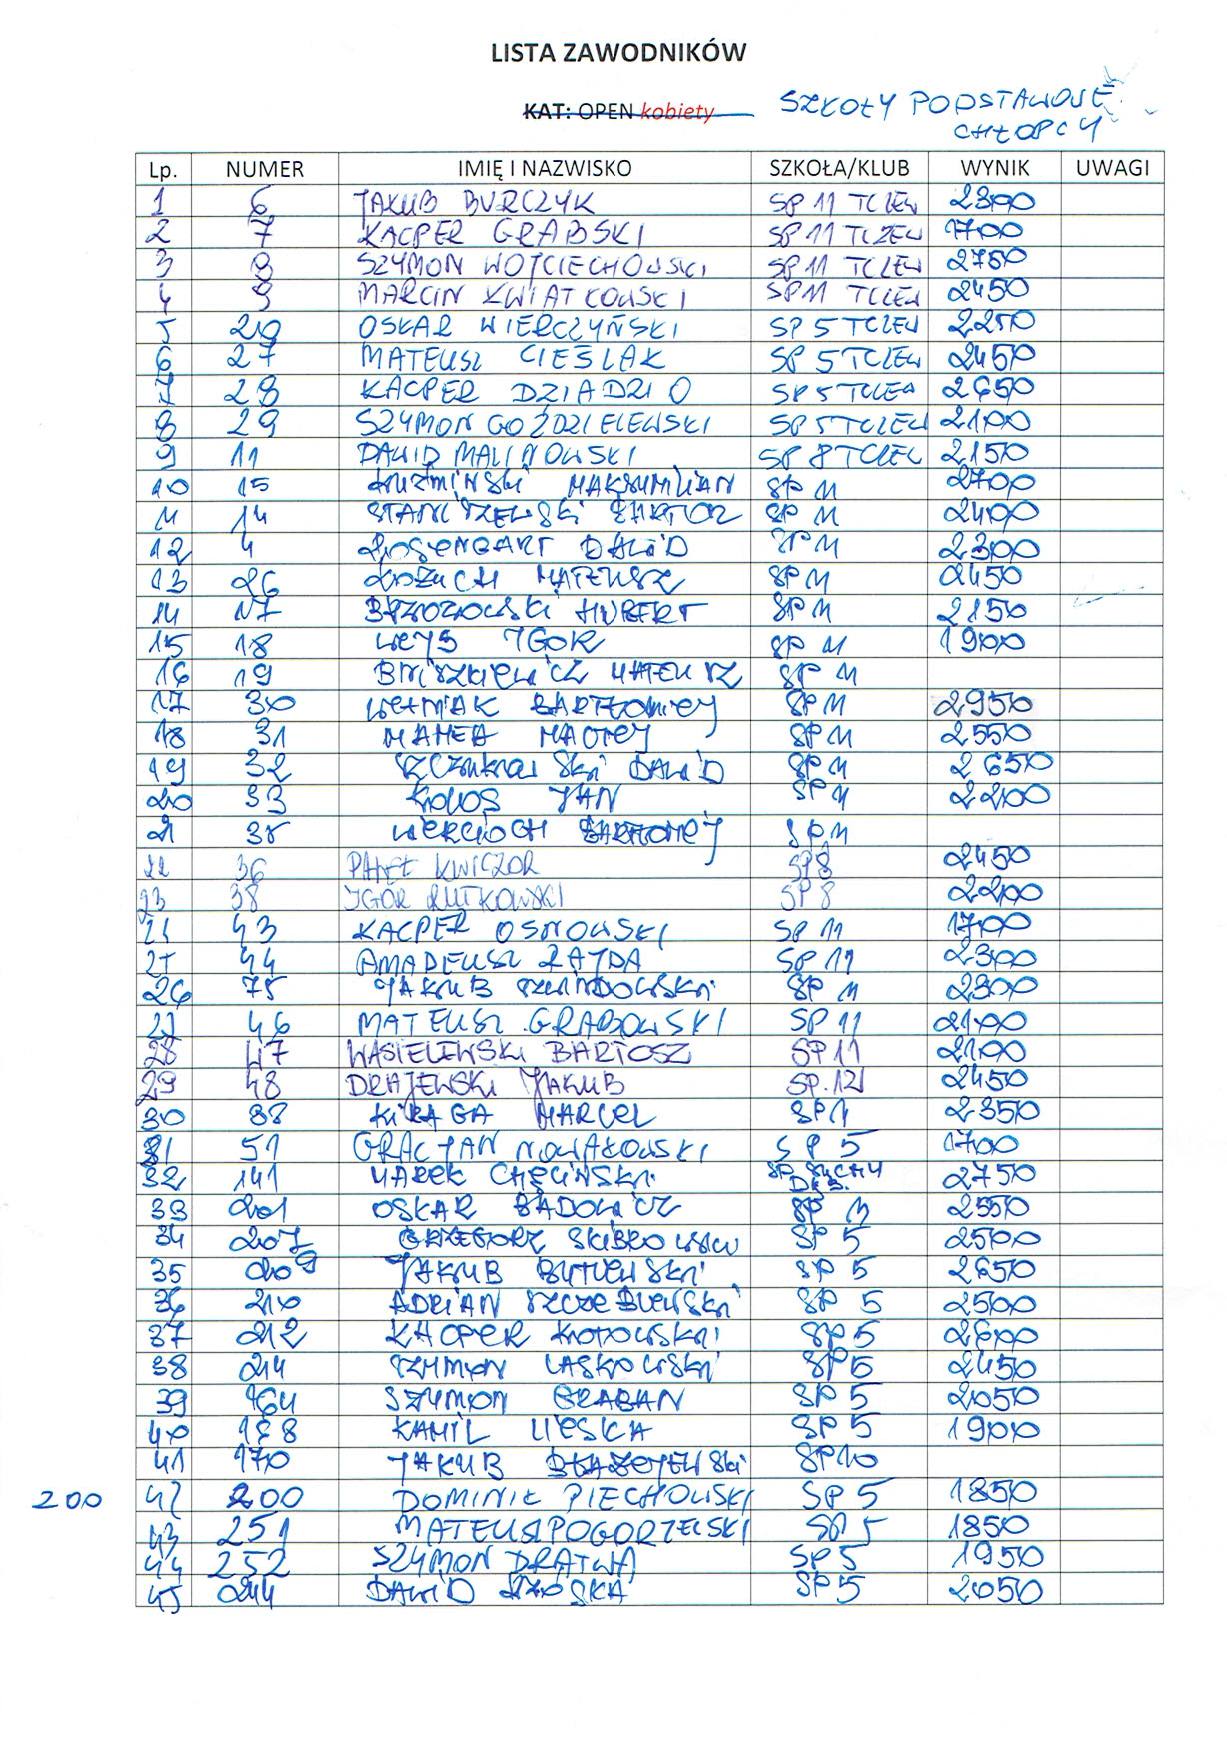 LISTA ZAWODNIKÓW
KAT: OPEN kobiety SZKOŁY PODSTAWOWE
CHŁOPCY
Lp. NUMER IMIĘ I NAZWISKO SZKOŁA/KLUB WYNIK UWAGI
1 6 JAKUB BURCZYK SP 11 TCZEW 2300
2 7 KACPER GRABSKI SP 11 TCZEW 1700
3 8 SZYMON WOJCIECHOWSKI SP 11 TCZEW 2750
4 9 MARCIN KWIATKOWSKI SP 11 TCZEW 2450
5 20 OSKAR WIERCZYŃSKI SP 5 TCZEW 2250
6 27 MATEUSZ CIEŚLAK SP 5 TCZEW 2450
7 28 KACPER DZIADZIO SP 5 TCZEW 2650
8 29 SZYMON GOŹDZIELEWSKI SP 5 TCZEW 2100
9 11 DAWID MALINOWSKI SP 8 TCZEW 2150
10 15 KUZMIŃSKI MAKSYMILIAN SP 11 2700
11 14 STANISZEWSKI BARTOSZ SP 11 2400
12 4 ROSENGART DAWID SP 11 2300
13 26 KOŻUCH MATEUSZ SP 11 2450
14 17 BRZOZOWSKI HUBERT SP 11 2150
15 18 WEYS IGOR SP 11 1900
16 19 MATEUSZ SP 11
17 30 WEŹNIAK BARTŁOMIEJ SP 11 2950
18 31 MAHEA MACIEJ SP 11 2550
19 32 DAWID SP 11 2650
20 33 KOLOS JAN SP 11 2200
21 35 WERCIOCH BARTŁOMIEJ SP 11
22 36 PAWEŁ KWICZOR SP 8 2450
23 38 IGOR RUTKOWSKI SP 8 2200
24 43 KACPER OSNOWSKI SP 11 1700
25 44 AMADEUSZ ZAJDA SP 11 2300
26 75 JAKUB SP 11 2300
27 46 MATEUSZ GRABOWSKI SP 11 2100
28 47 WASIELEWSKI BARTOSZ SP 11 2100
29 48 DRAJEWSKI JAKUB SP. 12 2450
30 88 KIRAGA MARCEL SP 1 2350
31 51 GRACJAN NOWAKOWSKI SP 5 1700
32 141 MAREK CHĘCIŃSKI SP SUCHY DĘB. 2750
33 201 OSKAR BADOWICZ SP 11 2550
34 207 GRZEGORZ SP 5 2500
35 209 JAKUB BUTLEWSKI SP 5 2650
36 210 ADRIAN SZCZEBLEWSKI SP 5 2500
37 212 KACPER KOTOWSKI SP 5 2600
38 214 SZYMON LASKOWSKI SP 5 2450
39 164 SZYMON GRABAN SP 5 2050
40 168 KAMIL LIESKA SP 5 1900
41 170 JAKUB BŁAŻEJEWSKI SP 10
200 42 200 DOMINIK PIECHOWSKI SP 5 1850
43 251 MATEUSZ POGORZELSKI SP 5 1850
44 252 SZYMON DRATWA SP 5 1950
45 244 DAWID SP 5 2050